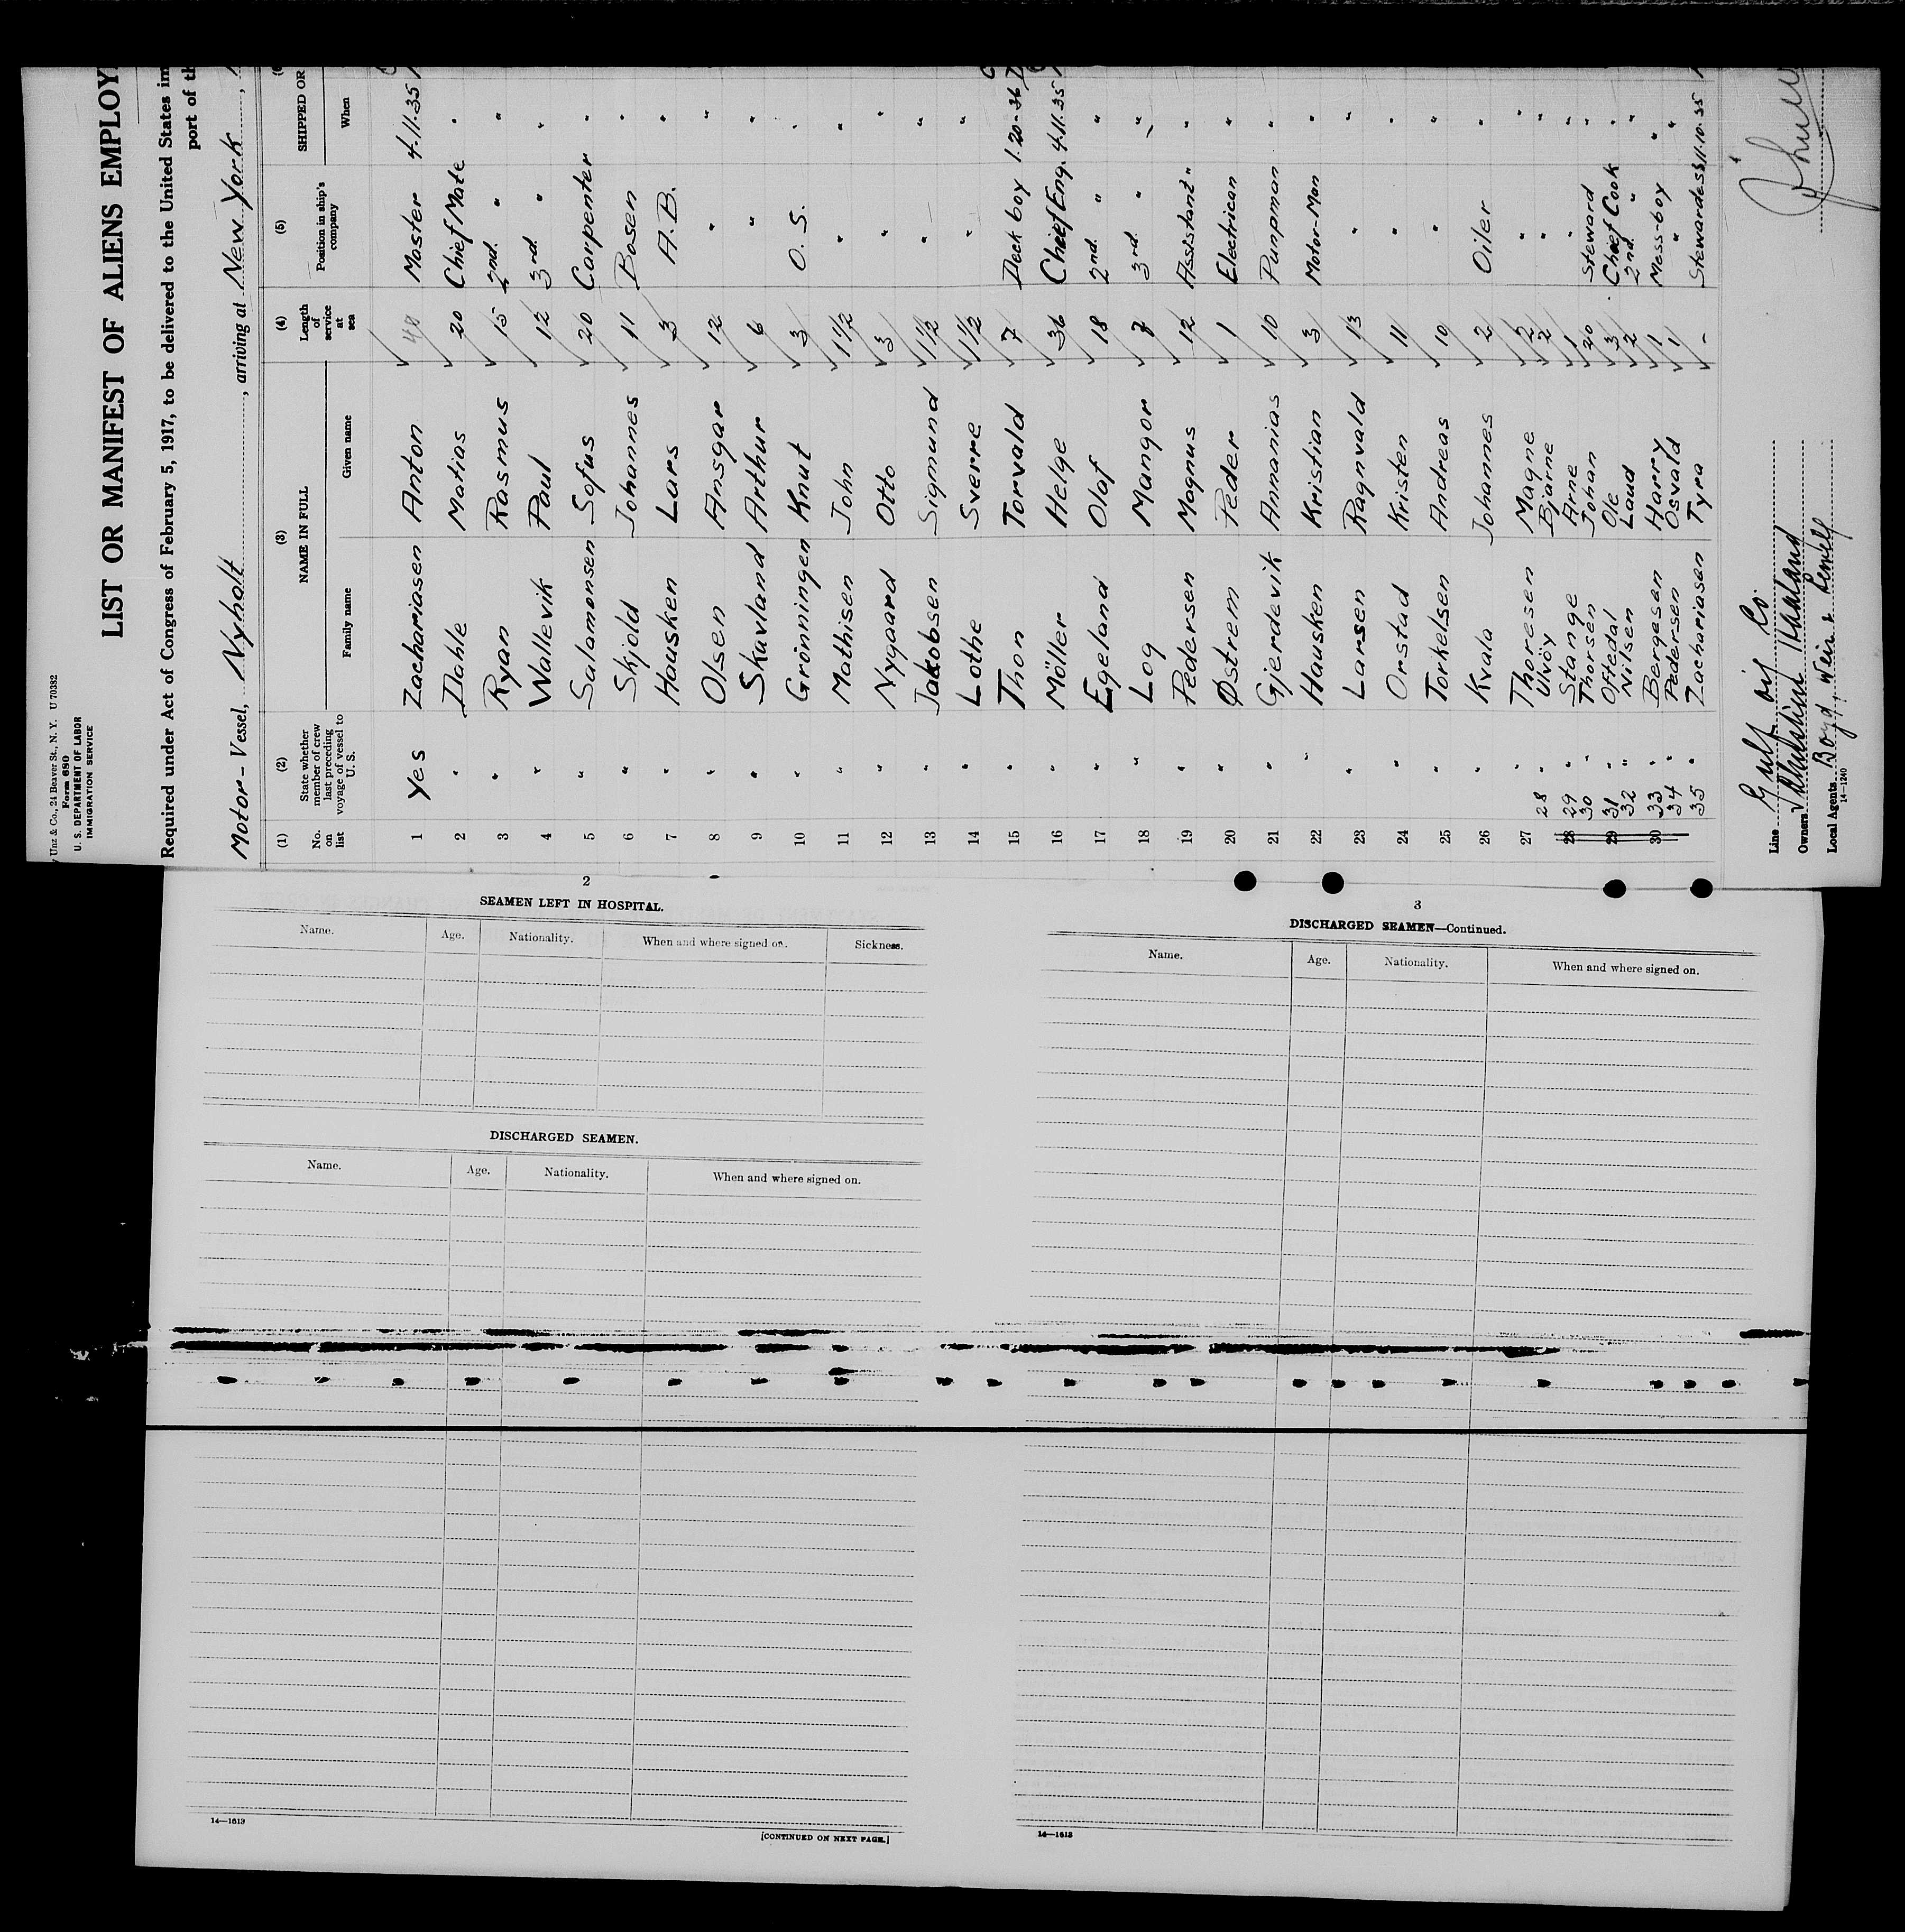 y Unz & Co., 24 Beaver St., N. Y. U 70382
Form 680
U. S. DEPARTMENT OF LABOR
IMMIGRATION SERVICE
LIST OR MANIFEST OF ALIENS EMPLOY
Required under Act of Congress of February 5, 1917, to be delivered to the United States im
port of th
Motor-Vessel, Nyholt, arriving at New York,
(1) (2) (3) (4) (5)
No. on list State whether member of crew last preceding voyage of vessel to U. S. NAME IN FULL Family name Given name Length of service at sea Position in ship's company SHIPPED OR When
1 Yes Zachariasen Anton 40 Master 4.11.35
2 " Dahle Matias 20 Chief Mate "
3 " Ryan Rasmus 15 2nd. " "
4 " Wallevik Paul 12 3rd " "
5 " Salamonsen Sofus 20 Carpenter "
6 " Skjold Johannes 11 Bosen "
7 " Hausken Lars 3 A.B. "
8 " Olsen Ansgar 12 " "
9 " Skavland Arthur 6 " "
10 " Grönningen Knut 3 O.S. "
11 " Mathisen John 1 1/2 " "
12 " Nygaard Otto 3 " "
13 " Jakobsen Sigmund 1 1/2 " "
14 " Lothe Sverre 1 1/2 " "
15 " Thon Torvald 7 Deck boy 1.20-36
16 " Möller Helge 36 Chief Eng. 4.11.35
17 " Egeland Olaf 18 2nd " "
18 " Log Mangor 7 3rd. " "
19 " Pedersen Magnus 12 Assistant " "
20 " Østrem Peder 1 Electrican "
21 " Gjerdevik Annanias 10 Punpman "
22 " Hausken Kristian 3 Motor-Man "
23 " Larsen Ragnvald 13 " "
24 " Orstad Kristen 11 " "
25 " Torkelsen Andreas 10 " "
26 " Kvala Johannes 2 Oiler "
27 " Thoresen Magne 5 " "
28 " Ulvöy Bjarne 2 " "
29 " Stange Arne 1 " "
30 " Thorsen Johan 20 Steward "
31 " Oftedal Ole 3 Chief Cook "
32 " Nilsen Laud 2 2nd. " "
33 " Bergesen Harry 1 Mess-boy "
34 " Pedersen Osvald 1 " "
35 " Zachariasen Tyra - Stewardess 11.10.35
28
29
30
Line Gulf Oil Co.
Owners Haaland
Local Agents Boyd, Weir & Sewell
14-1240
2
SEAMEN LEFT IN HOSPITAL.
Name. Age. Nationality. When and where signed on. Sickness.
DISCHARGED SEAMEN.
Name. Age. Nationality. When and where signed on.
14—1613
[CONTINUED ON NEXT PAGE.]
3
DISCHARGED SEAMEN—Continued.
Name. Age. Nationality. When and where signed on.
14—1613